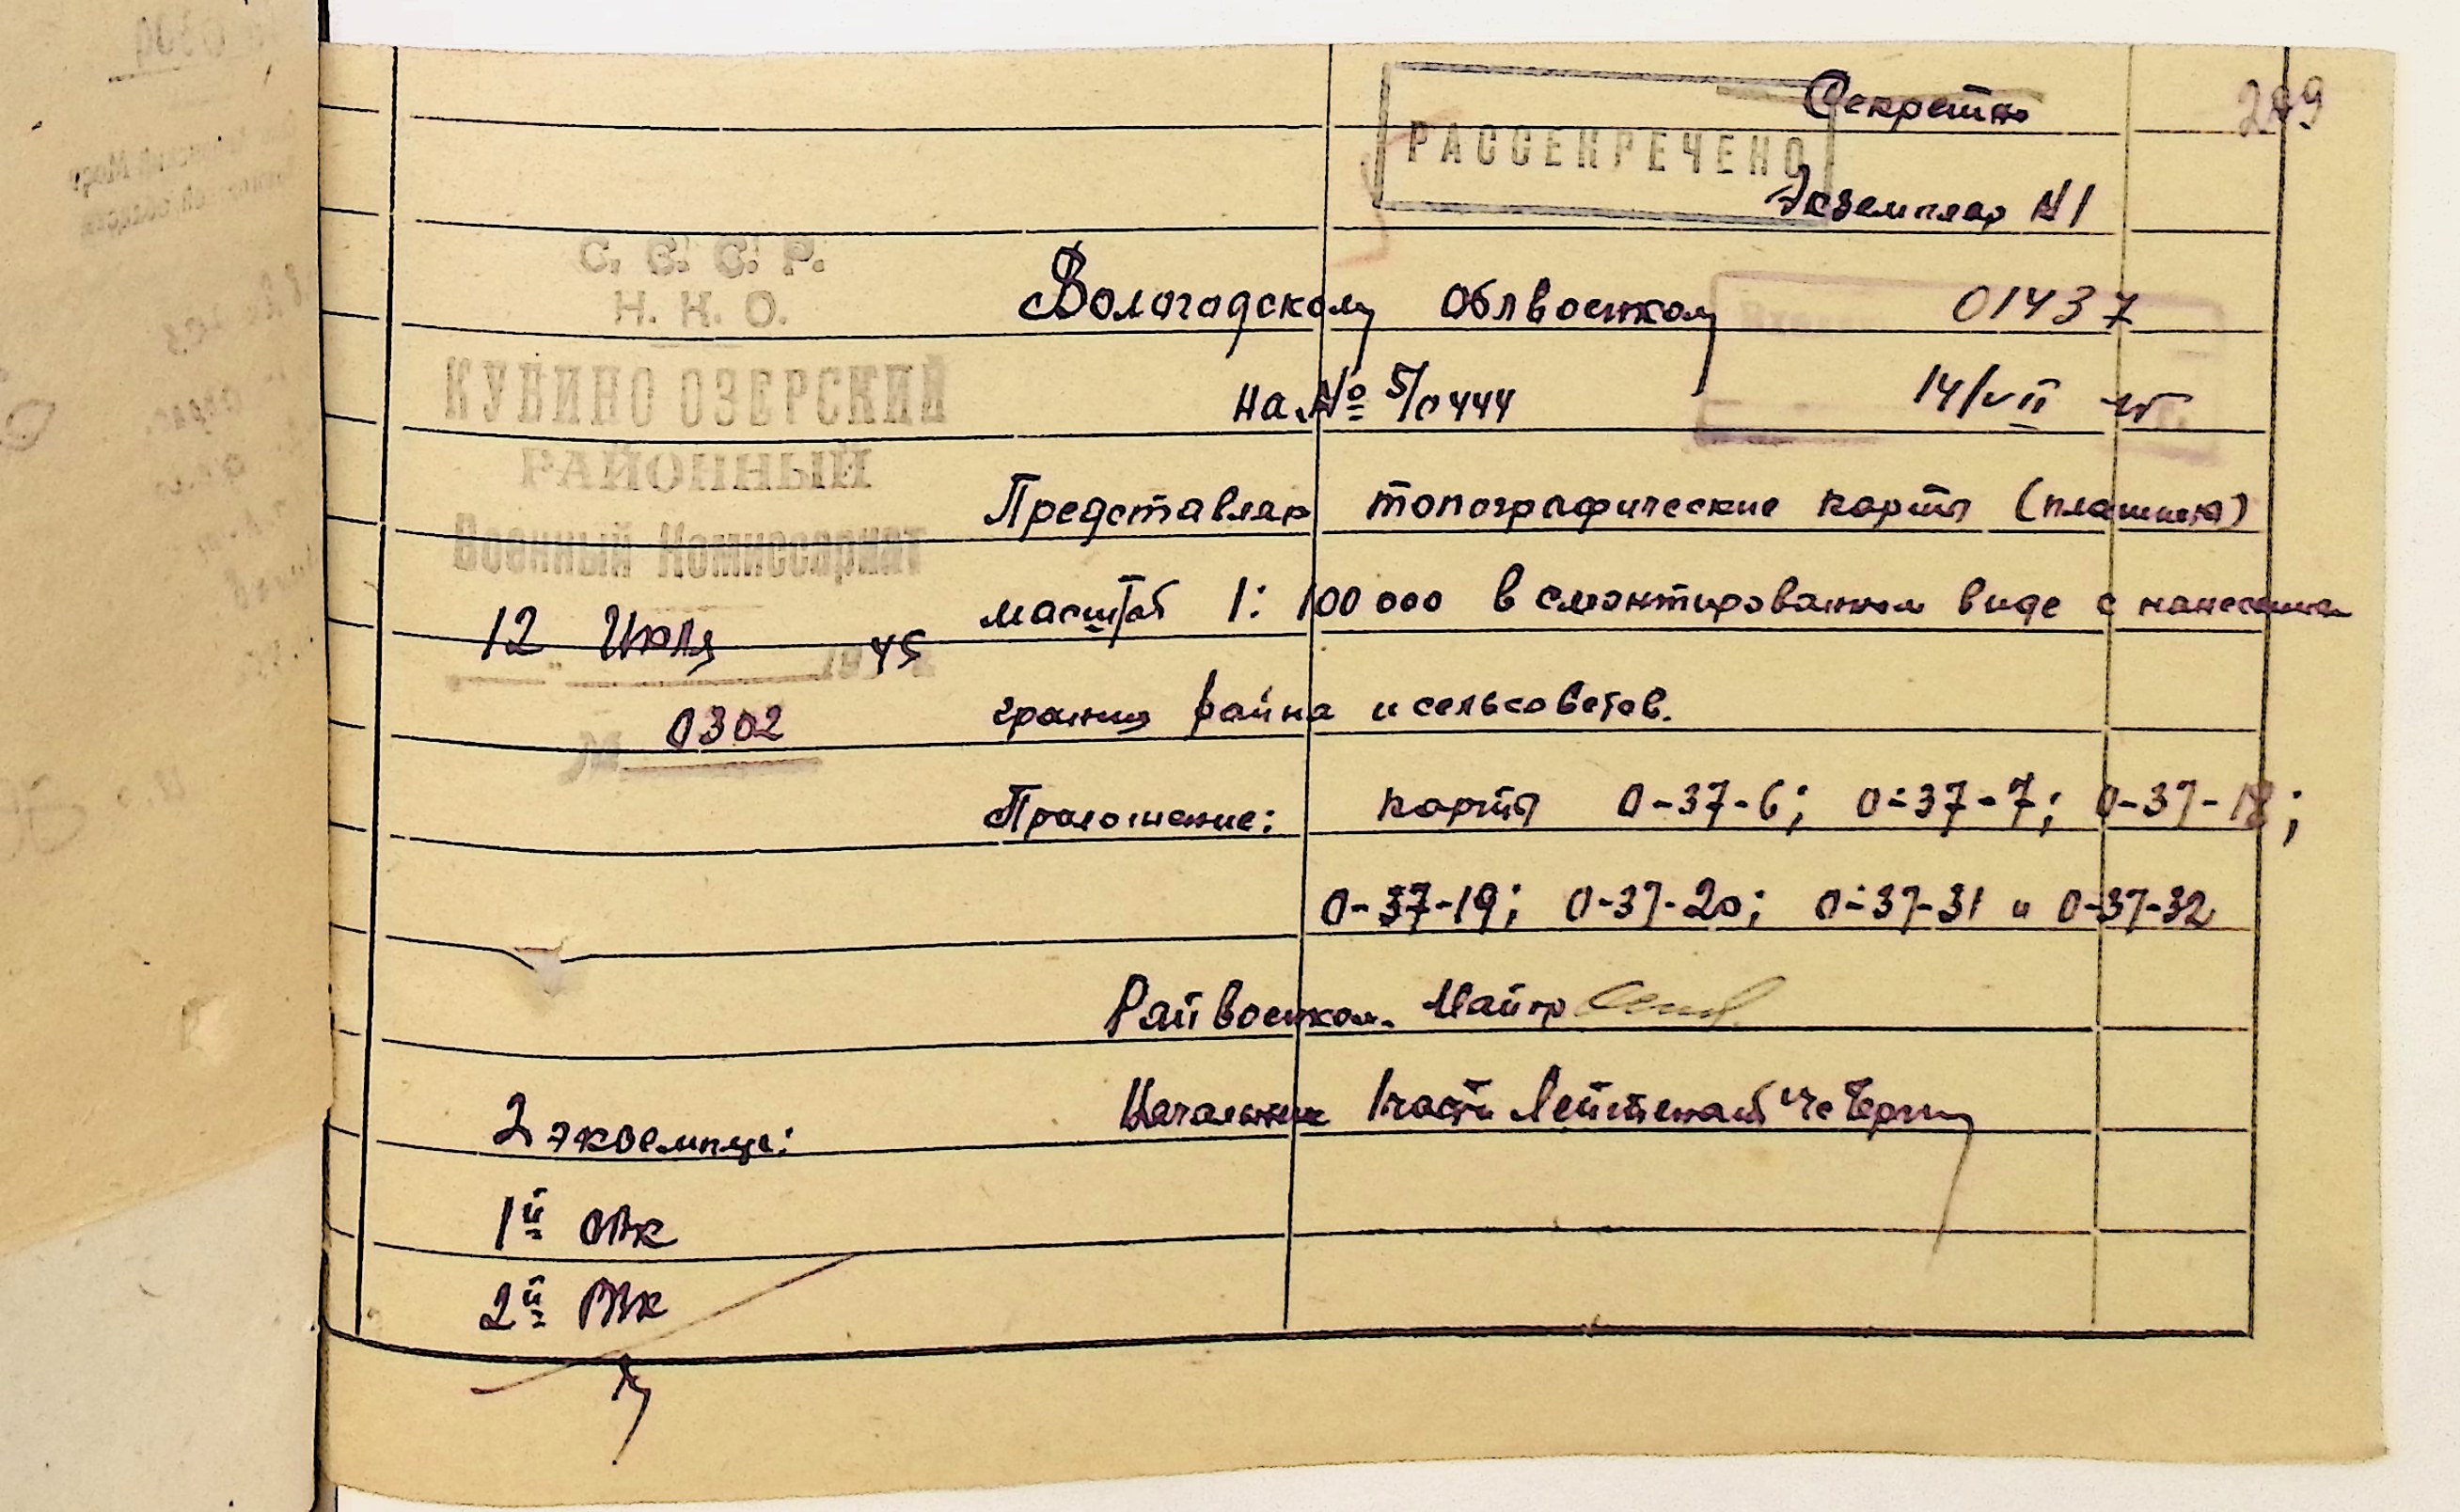 Секретно
289
РАССЕКРЕЧЕНО
Экземпляр N 1
С. С. С. Р.
Н. К. О.
КУБИНО ОЗЕРСКИЙ
РАЙОННЫЙ
Военный Комиссариат
12 Июля 1945
№ 0302
Вологодскому Облвоенкому
01437
на № 5/0444
14/VII 45
Представляю топографические карты
масштаб 1: 100 000 в смонтированном виде с нанесением
границ района и сельсоветов.
Приложение: карты 0-37-6; 0-37-7; 0-37-18;
0-37-19; 0-37-20; 0-37-31 и 0-37-32
Райвоенком. Майор
Начальник 1 части Лейтенант
2 экземпл:
1й ОВК
2й РВК